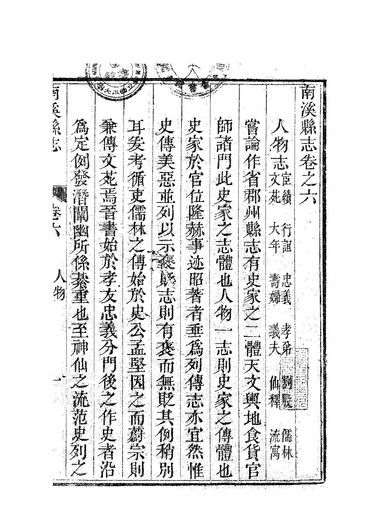 南溪縣志卷之六
人物志 宦績 行誼 忠義 孝弟 儒林
文苑 大年 壽婦 義夫 仙釋 流寓
嘗論作省郡州縣志有史家之二體天文輿地食貨官
師諸門此史家之志體也人物一志則史家之傳體也
史家於官位隆赫事迹昭著者垂爲列傳志亦宜然惟
史傳美惡並列以示褒貶志則有褒而無貶其例稍別
耳爰考循吏儒林之傳始於史公孟堅因之而蔚宗則
兼傳文苑焉晉書始於孝友忠義分門後之作史者沿
爲定例發潛闡幽所係綦重也至神仙之流范史列之
南溪縣志
卷六
人物
一